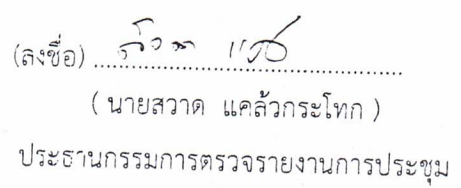 (ลงชื่อ)
( นายสวาด แคล้วกระโทก )
ประธานกรรมการตรวจรายงานการประชุม